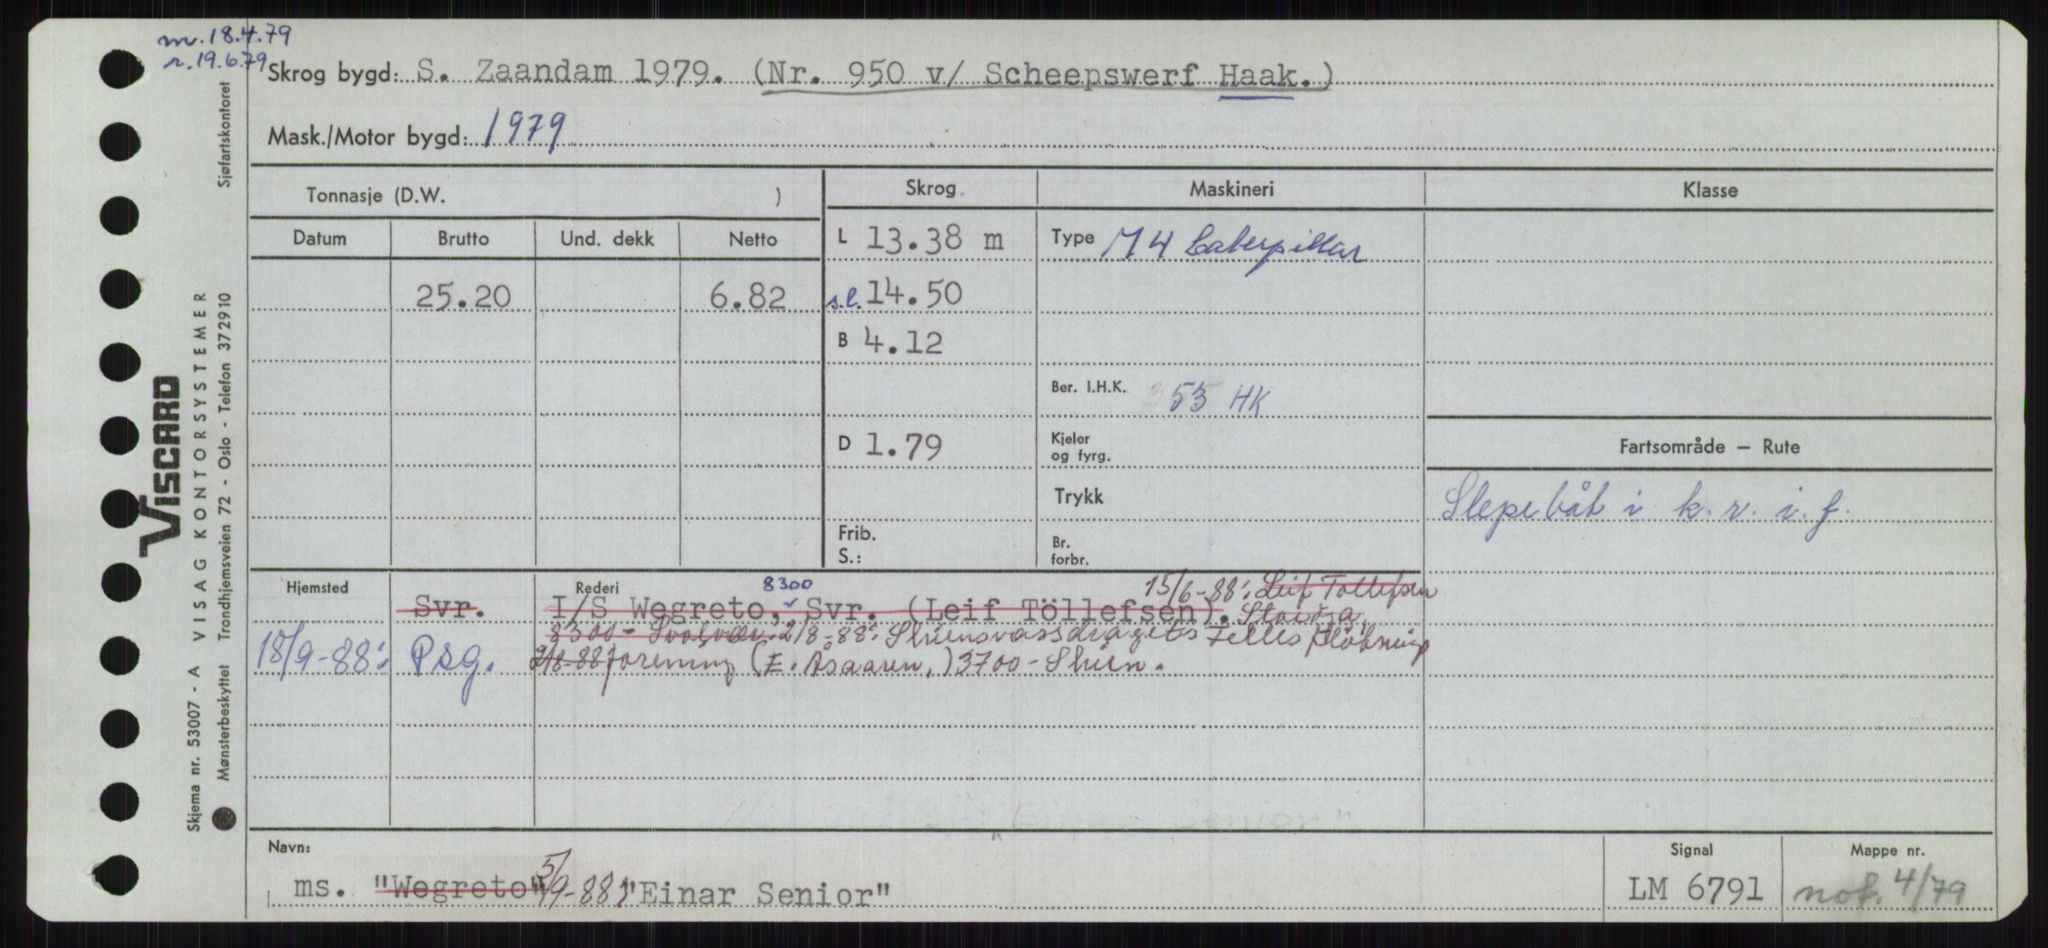 m. 18.4.79
r. 19.6.79
Skrog bygd: S. Zaandam 1979. (Nr. 950 v/ Scheepswerf Haak.)
Mask./Motor bygd: 1979
Tonnasje (D.W. )
Skrog
Maskineri
Klasse
Datum Brutto Und. dekk Netto
L 13.38 m
Type M 4 Caterpillar
25.20 6.82
s.l. 14.50
B 4.12
Ber. I.H.K. 53 HK
D 1.79
Kjeler
og fyrg.
Fartsområde — Rute
Trykk
Slepebåt i k. r. i. f.
Frib.
S.:
Br.
forbr.
Hjemsted Rederi 8300
15/6-88: Leif Tollefsen
Svr. I/S Wegreto, Svr. (Leif Töllefsen).
8300- Svolvær. 2/8-88: Skiensvassdragets Felles Fløtnings
18/9-88: Psg. 2/8-88 forening (E. Åsaaren,) 3700-Skien.
Navn:
ms. "Wegreto" 5/9-88: "Einar Senior"
Signal
LM 6791
Mappe nr.
nof. 4/79
Skjema nr. 53007 - A VISAG KONTORSYSTEMER
VISCARD
Mønsterbeskyttet Trondhjemsveien 72 - Oslo - Telefon 372910
Sjøfartskontoret